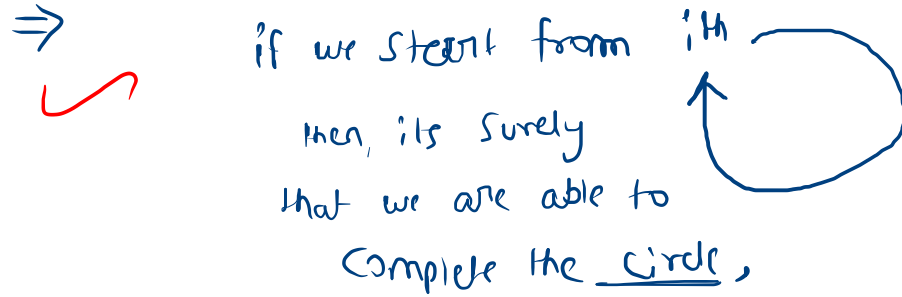 ⇒ if we start from ith
then, its surely
that we are able to
complete the circle,